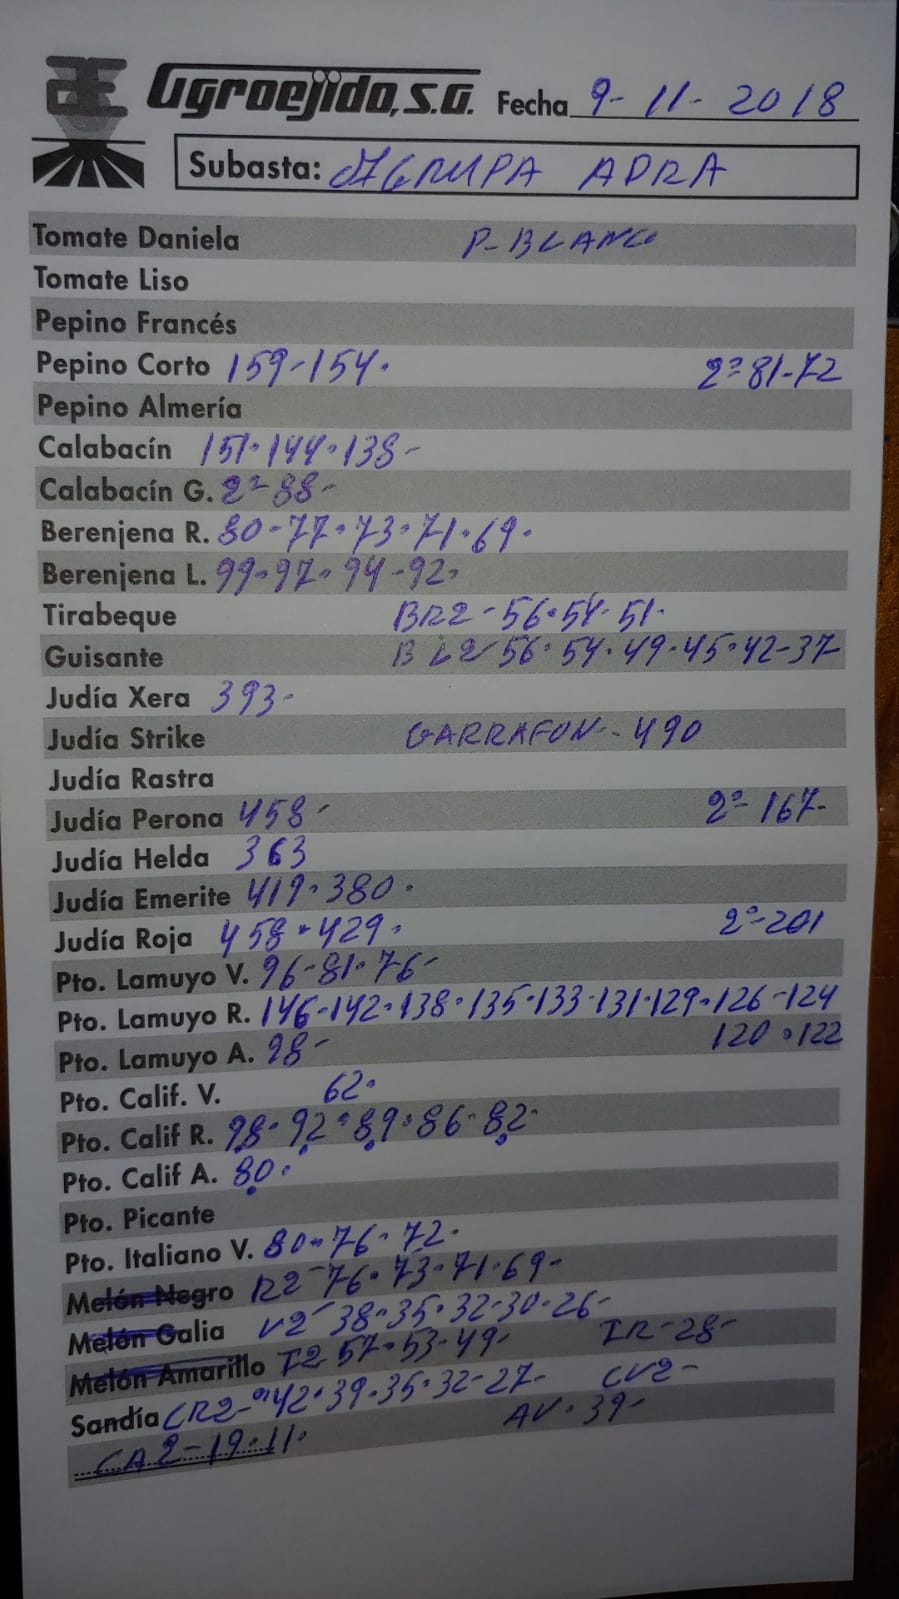 Agroejido, S.A. Fecha 9-11-2018
Subasta: AGRUPA ADRA
Tomate Daniela P-BLANCO
Tomate Liso
Pepino Francés
Pepino Corto 159-154. 2ª 81-72
Pepino Almería
Calabacín 151.144.138-
Calabacín G. 2ª-88-
Berenjena R. 80-77.73.71.69.
Berenjena L. 99.97.94-92.
Tirabeque BR2-56.54.51.
Guisante BL2 56.54.49.45.42-37
Judía Xera 393-
Judía Strike GARRAFON-490
Judía Rastra
Judía Perona 458- 2ª-167-
Judía Helda 363
Judía Emerite 419.380.
Judía Roja 458-429. 2ª-201
Pto. Lamuyo V. 96-81.76-
Pto. Lamuyo R. 146-142.138.135.133.131.129.126-124
120.122
Pto. Lamuyo A. 98-
Pto. Calif. V. 62.
Pto. Calif R. 98-92.89.86-82-
Pto. Calif A. 80.
Pto. Picante
Pto. Italiano V. 80-76-72.
Melón Negro R2-76.73.71.69-
Melón Galia V2-38.35.32.30.26-
Melón Amarillo I2 57-53-49- IR-28-
Sandía CR2-42.39.35.32-27- CV2-
CA2-19.11. AV.39-